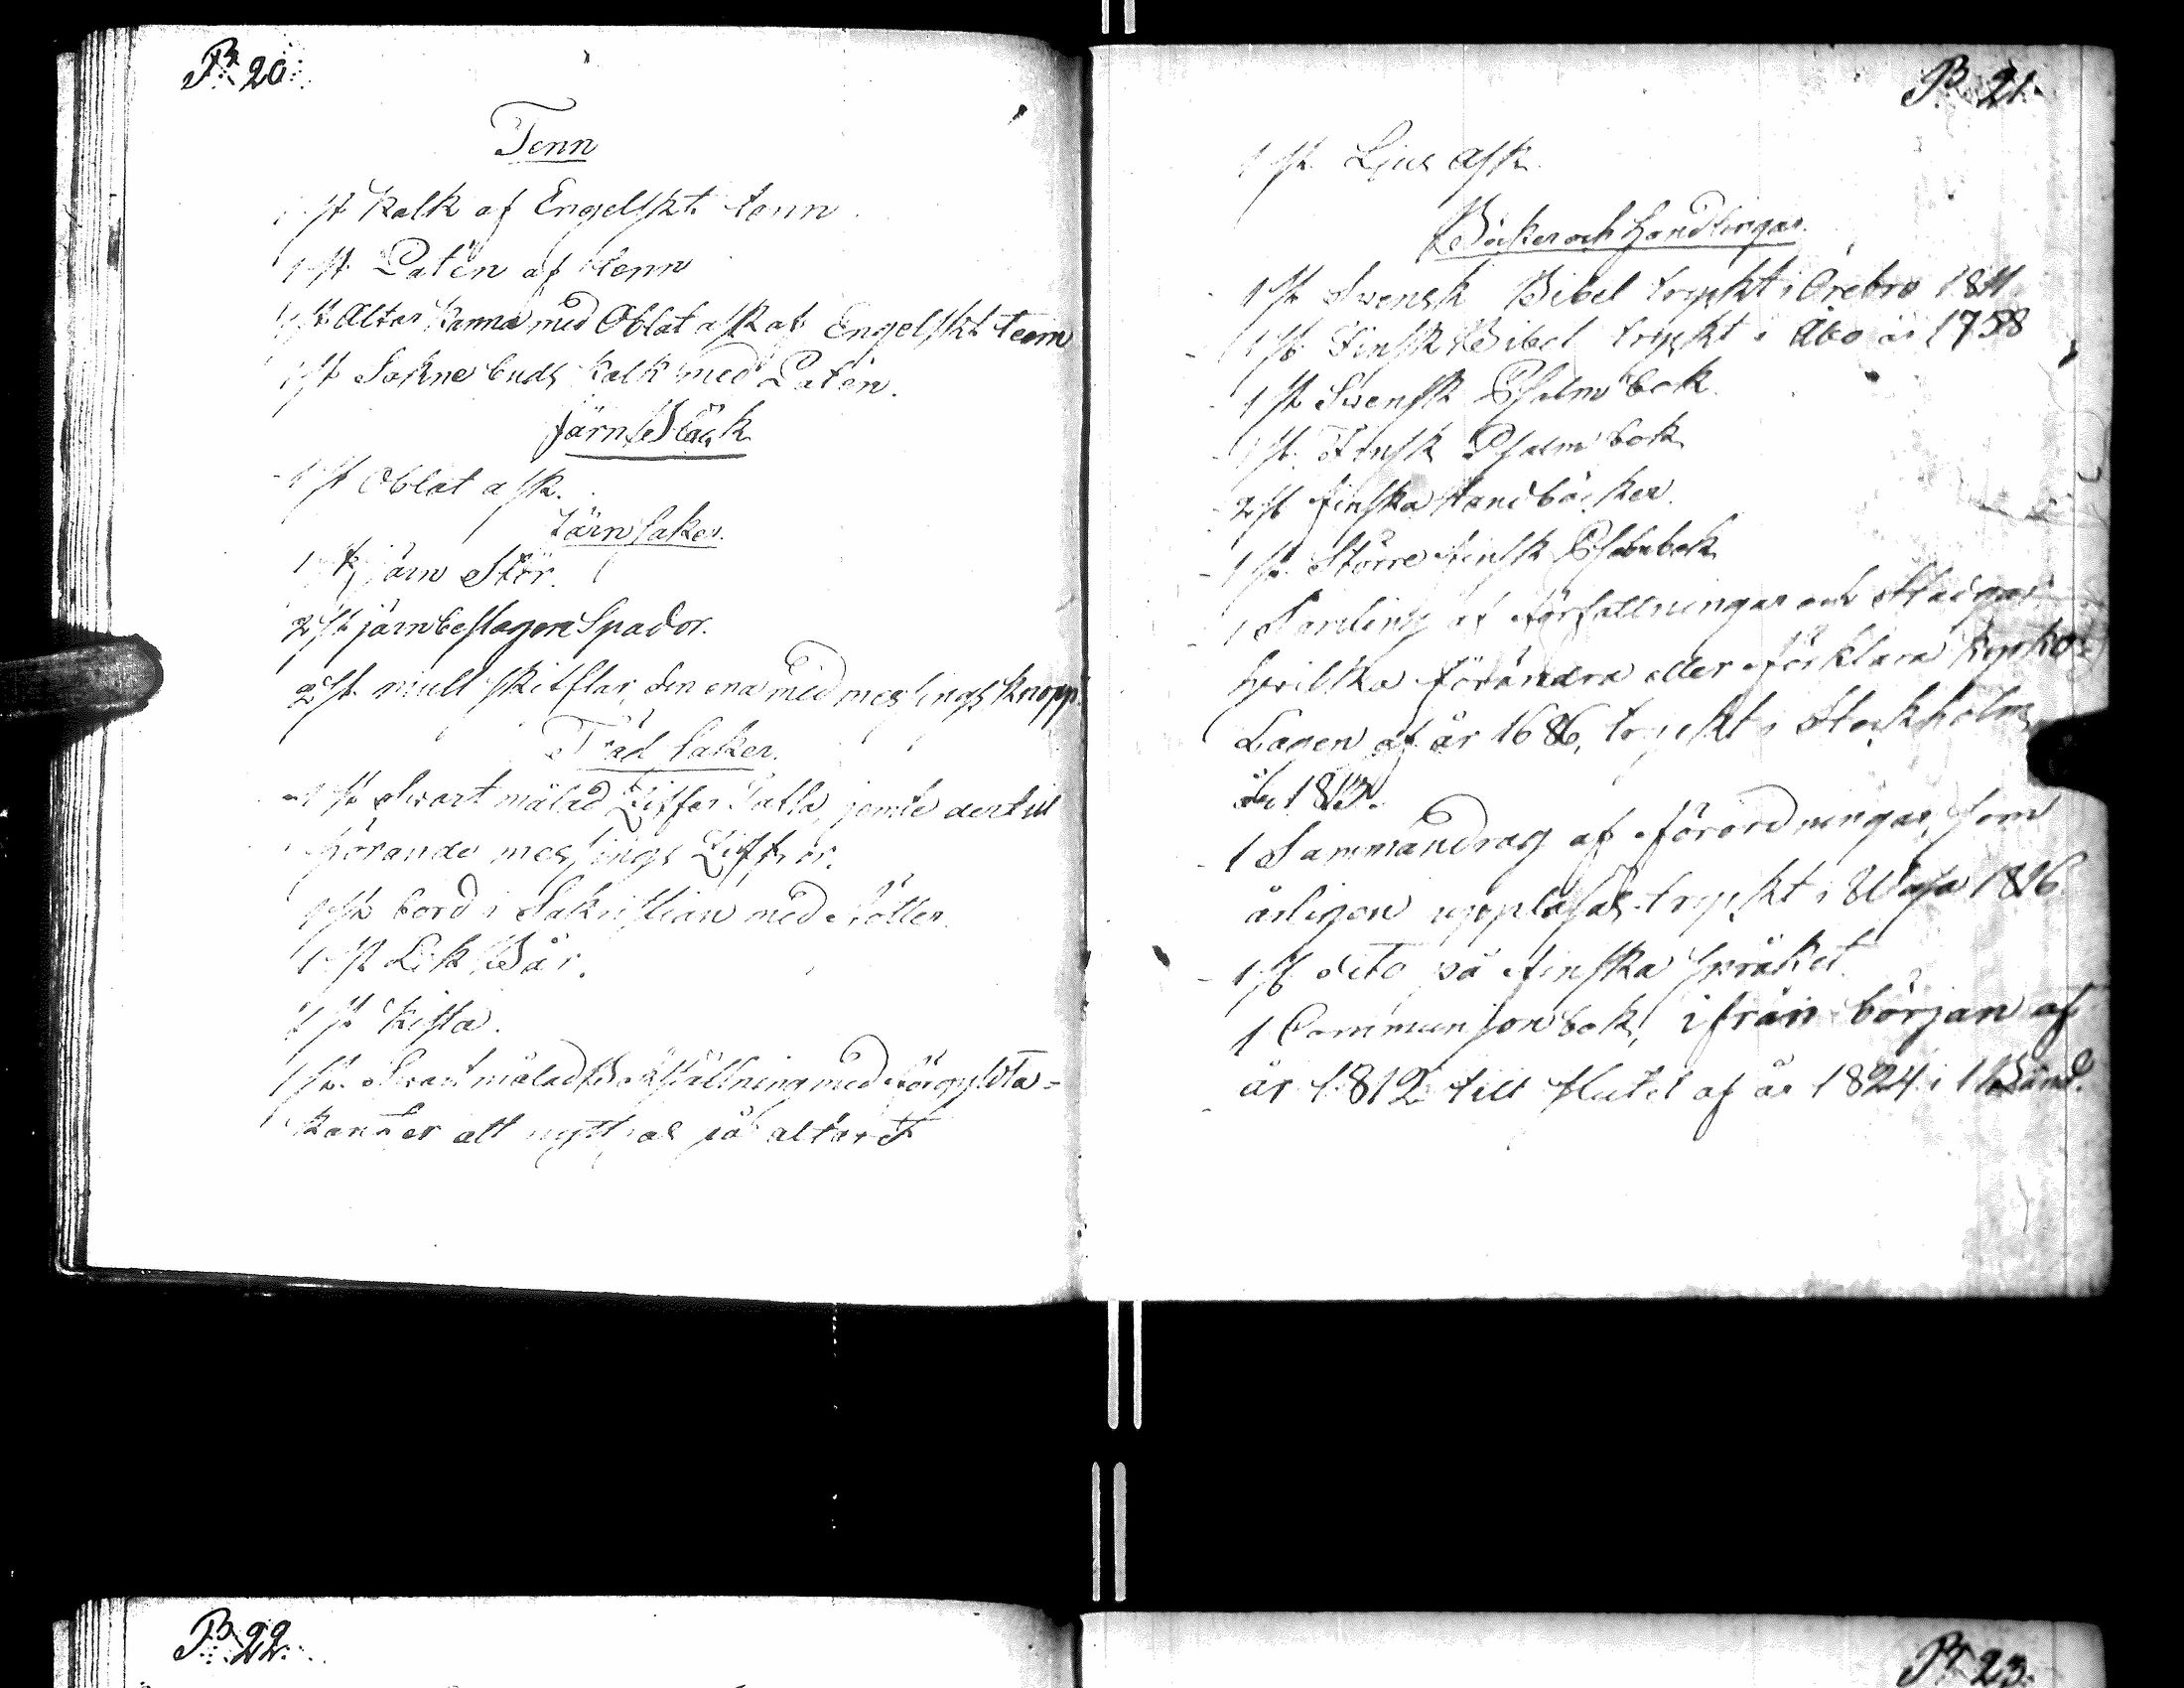 P. 20.
Tenn
1 st Kalk af Engelskt tenn.
1 st. Patén af tenn
1 st. Altar Kanna med Oblat ask af Engelskt teen
1 st Sokne buds Kalk med Patén.
Järn Bläck
1 st Oblat ask.
Järn saker.
1 st järn Stör.
2 st. järnbeslagene Spador.
2 st. mull skiflar, den ena med messings knopp.
Träd saker.
1 st. Swart målad Ziffer Tafla, jemte dertill
hörande messings Ziffror.
1 st. bord i Sakristian med fötter.
1 st Lik Bår.
1 st. Kista.
1 st. Swart målad ställning med förgylda
Kanter att nyttjas på altaret
P. 21.
1 st. Ljus ask.
Böcker och Handlingar.
1 st. Svensk Bibel tryckt i Örebro 1811.
1 st. Finsk Bibel tryckt i Åbo år 1758
1 st. Swensk Psalm bok.
1 st. Finsk Psalm bok
2 st finska Handböcker.
1 st. Större finsk Psalmbok
1 Samling af författningar och Stadgar
hvilka förändra eller förklara Kyrko=
Lagen af år 1686, tryckt i Stockholm
år 1813.
1 Sammandrag af förordningar, som
årligen uppläsas tryckt i Wasa 1816
1 st dito på finska språket.
1 Communion bok, ifrån början af
år 1812 till slutet af år 1824 i 1 Band.
P. 22.
P. 23.